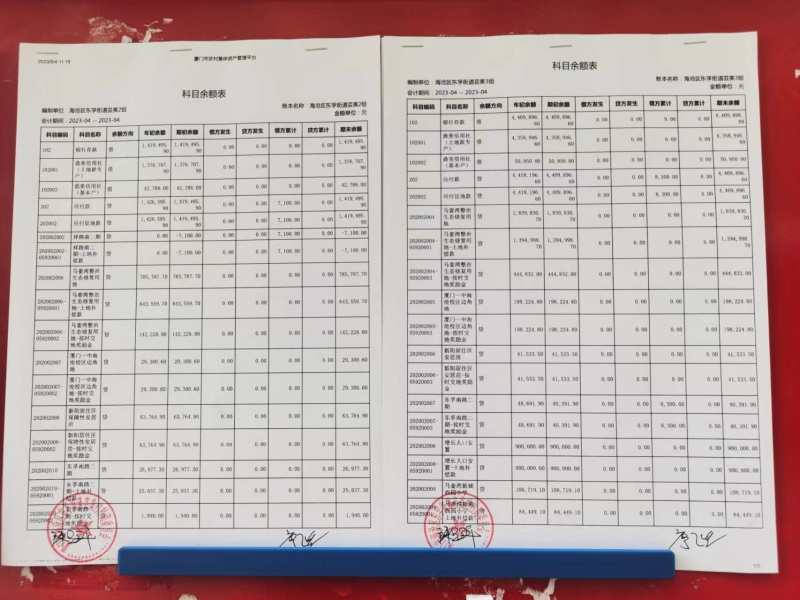 2023/5/4 11:16
厦门市农村集体资产管理平台
科目余额表
编制单位：海沧区东孚街道芸美2组
账本名称：海沧区东孚街道芸美2组
会计期间：2023-04 -- 2023-04
金额单位：元
科目编码 科目名称 余额方向 年初余额 期初余额 借方发生 贷方发生 借方累计 贷方累计 期末余额
102 银行存款 借 1,419,495.90 1,419,495.90 0.00 0.00 0.00 0.00 1,419,495.90
102001 鼎美信用社（土地款专户） 借 1,376,707.90 1,376,707.90 0.00 0.00 0.00 0.00 1,376,707.90
102002 鼎美信用社（基本户） 借 42,788.00 42,788.00 0.00 0.00 0.00 0.00 42,788.00
202 应付款 贷 1,426,595.90 1,419,495.90 0.00 0.00 7,100.00 0.00 1,419,495.90
202002 应付征地款 贷 1,426,595.90 1,419,495.90 0.00 0.00 7,100.00 0.00 1,419,495.90
202002002 祥路南二期 贷 0.00 -7,100.00 0.00 0.00 7,100.00 0.00 -7,100.00
202002002-05920001 祥路南二期-土地补偿款 贷 0.00 -7,100.00 0.00 0.00 7,100.00 0.00 -7,100.00
202002006 马銮湾整治生态修复用地 贷 785,787.70 785,787.70 0.00 0.00 0.00 0.00 785,787.70
202002006-05920001 马銮湾整治生态修复用地-土地补偿款 贷 643,559.70 643,559.70 0.00 0.00 0.00 0.00 643,559.70
202002006-05920002 马銮湾整治生态修复用地-按时交地奖励金 贷 142,228.00 142,228.00 0.00 0.00 0.00 0.00 142,228.00
202002007 厦门一中海沧校区边角地 贷 29,300.60 29,300.60 0.00 0.00 0.00 0.00 29,300.60
202002007-05920002 厦门一中海沧校区边角地-按时交地奖励金 贷 29,300.60 29,300.60 0.00 0.00 0.00 0.00 29,300.60
202002008 新阳居住区保障性安居房 贷 63,764.90 63,764.90 0.00 0.00 0.00 0.00 63,764.90
202002008-05920002 新阳居住区保障性安居房-按时交地奖励金 贷 63,764.90 63,764.90 0.00 0.00 0.00 0.00 63,764.90
202002010 东孚南路二期 贷 26,977.30 26,977.30 0.00 0.00 0.00 0.00 26,977.30
202002010-05920001 东孚南路二期-土地补偿款 贷 25,037.30 25,037.30 0.00 0.00 0.00 0.00 25,037.30
东孚南路二期-按时交地奖励金 贷 1,940.00 1,940.00 0.00 0.00 0.00 0.00 1,940.00
科目余额表
编制单位：海沧区东孚街道芸美3组
账本名称：海沧区东孚街道芸美3组
会计期间：2023-04 -- 2023-04
金额单位：元
科目编码 科目名称 余额方向 年初余额 期初余额 借方发生 贷方发生 借方累计 贷方累计 期末余额
102 银行存款 借 4,409,896.60 4,409,896.60 0.00 0.00 0.00 0.00 4,409,896.60
102001 鼎美信用社（土地款专户） 借 4,358,946.60 4,358,946.60 0.00 0.00 0.00 0.00 4,358,946.60
102002 鼎美信用社（基本户） 借 50,950.00 50,950.00 0.00 0.00 0.00 0.00 50,950.00
202 应付款 贷 4,418,196.60 4,409,896.60 0.00 0.00 8,300.00 0.00 4,409,896.60
202002 应付征地款 贷 4,418,196.60 4,409,896.60 0.00 0.00 8,300.00 0.00 4,409,896.60
202002004 马銮湾整治生态修复用地 贷 1,839,830.70 1,839,830.70 0.00 0.00 0.00 0.00 1,839,830.70
202002004-05920001 马銮湾整治生态修复用地-土地补偿款 贷 1,394,998.70 1,394,998.70 0.00 0.00 0.00 0.00 1,394,998.70
202002004-05920002 马銮湾整治生态修复用地-按时交地奖励金 贷 444,832.00 444,832.00 0.00 0.00 0.00 0.00 444,832.00
202002005 厦门一中海沧校区边角地 贷 198,224.80 198,224.80 0.00 0.00 0.00 0.00 198,224.80
202002005-05920003 厦门一中海沧校区边角地-按时交地奖励金 贷 198,224.80 198,224.80 0.00 0.00 0.00 0.00 198,224.80
202002006 新阳居住区安居房 贷 41,533.50 41,533.50 0.00 0.00 0.00 0.00 41,533.50
202002006-05920003 新阳居住区安居房-按时交地奖励金 贷 41,533.50 41,533.50 0.00 0.00 0.00 0.00 41,533.50
202002007 东孚南路二期 贷 48,691.90 40,391.90 0.00 0.00 8,300.00 0.00 40,391.90
202002007-05920003 东孚南路二期-按时交地奖励金 贷 48,691.90 40,391.90 0.00 0.00 8,300.00 0.00 40,391.90
202002008 增长人口安置 贷 900,000.00 900,000.00 0.00 0.00 0.00 0.00 900,000.00
202002008-05920001 增长人口安置-土地补偿款 贷 900,000.00 900,000.00 0.00 0.00 0.00 0.00 900,000.00
202002009 马銮湾新城西园小学 贷 108,719.10 108,719.10 0.00 0.00 0.00 0.00 108,719.10
马銮湾新城西园小学-土地补偿款 贷 84,449.10 84,449.10 0.00 0.00 0.00 0.00 84,449.10
1/3